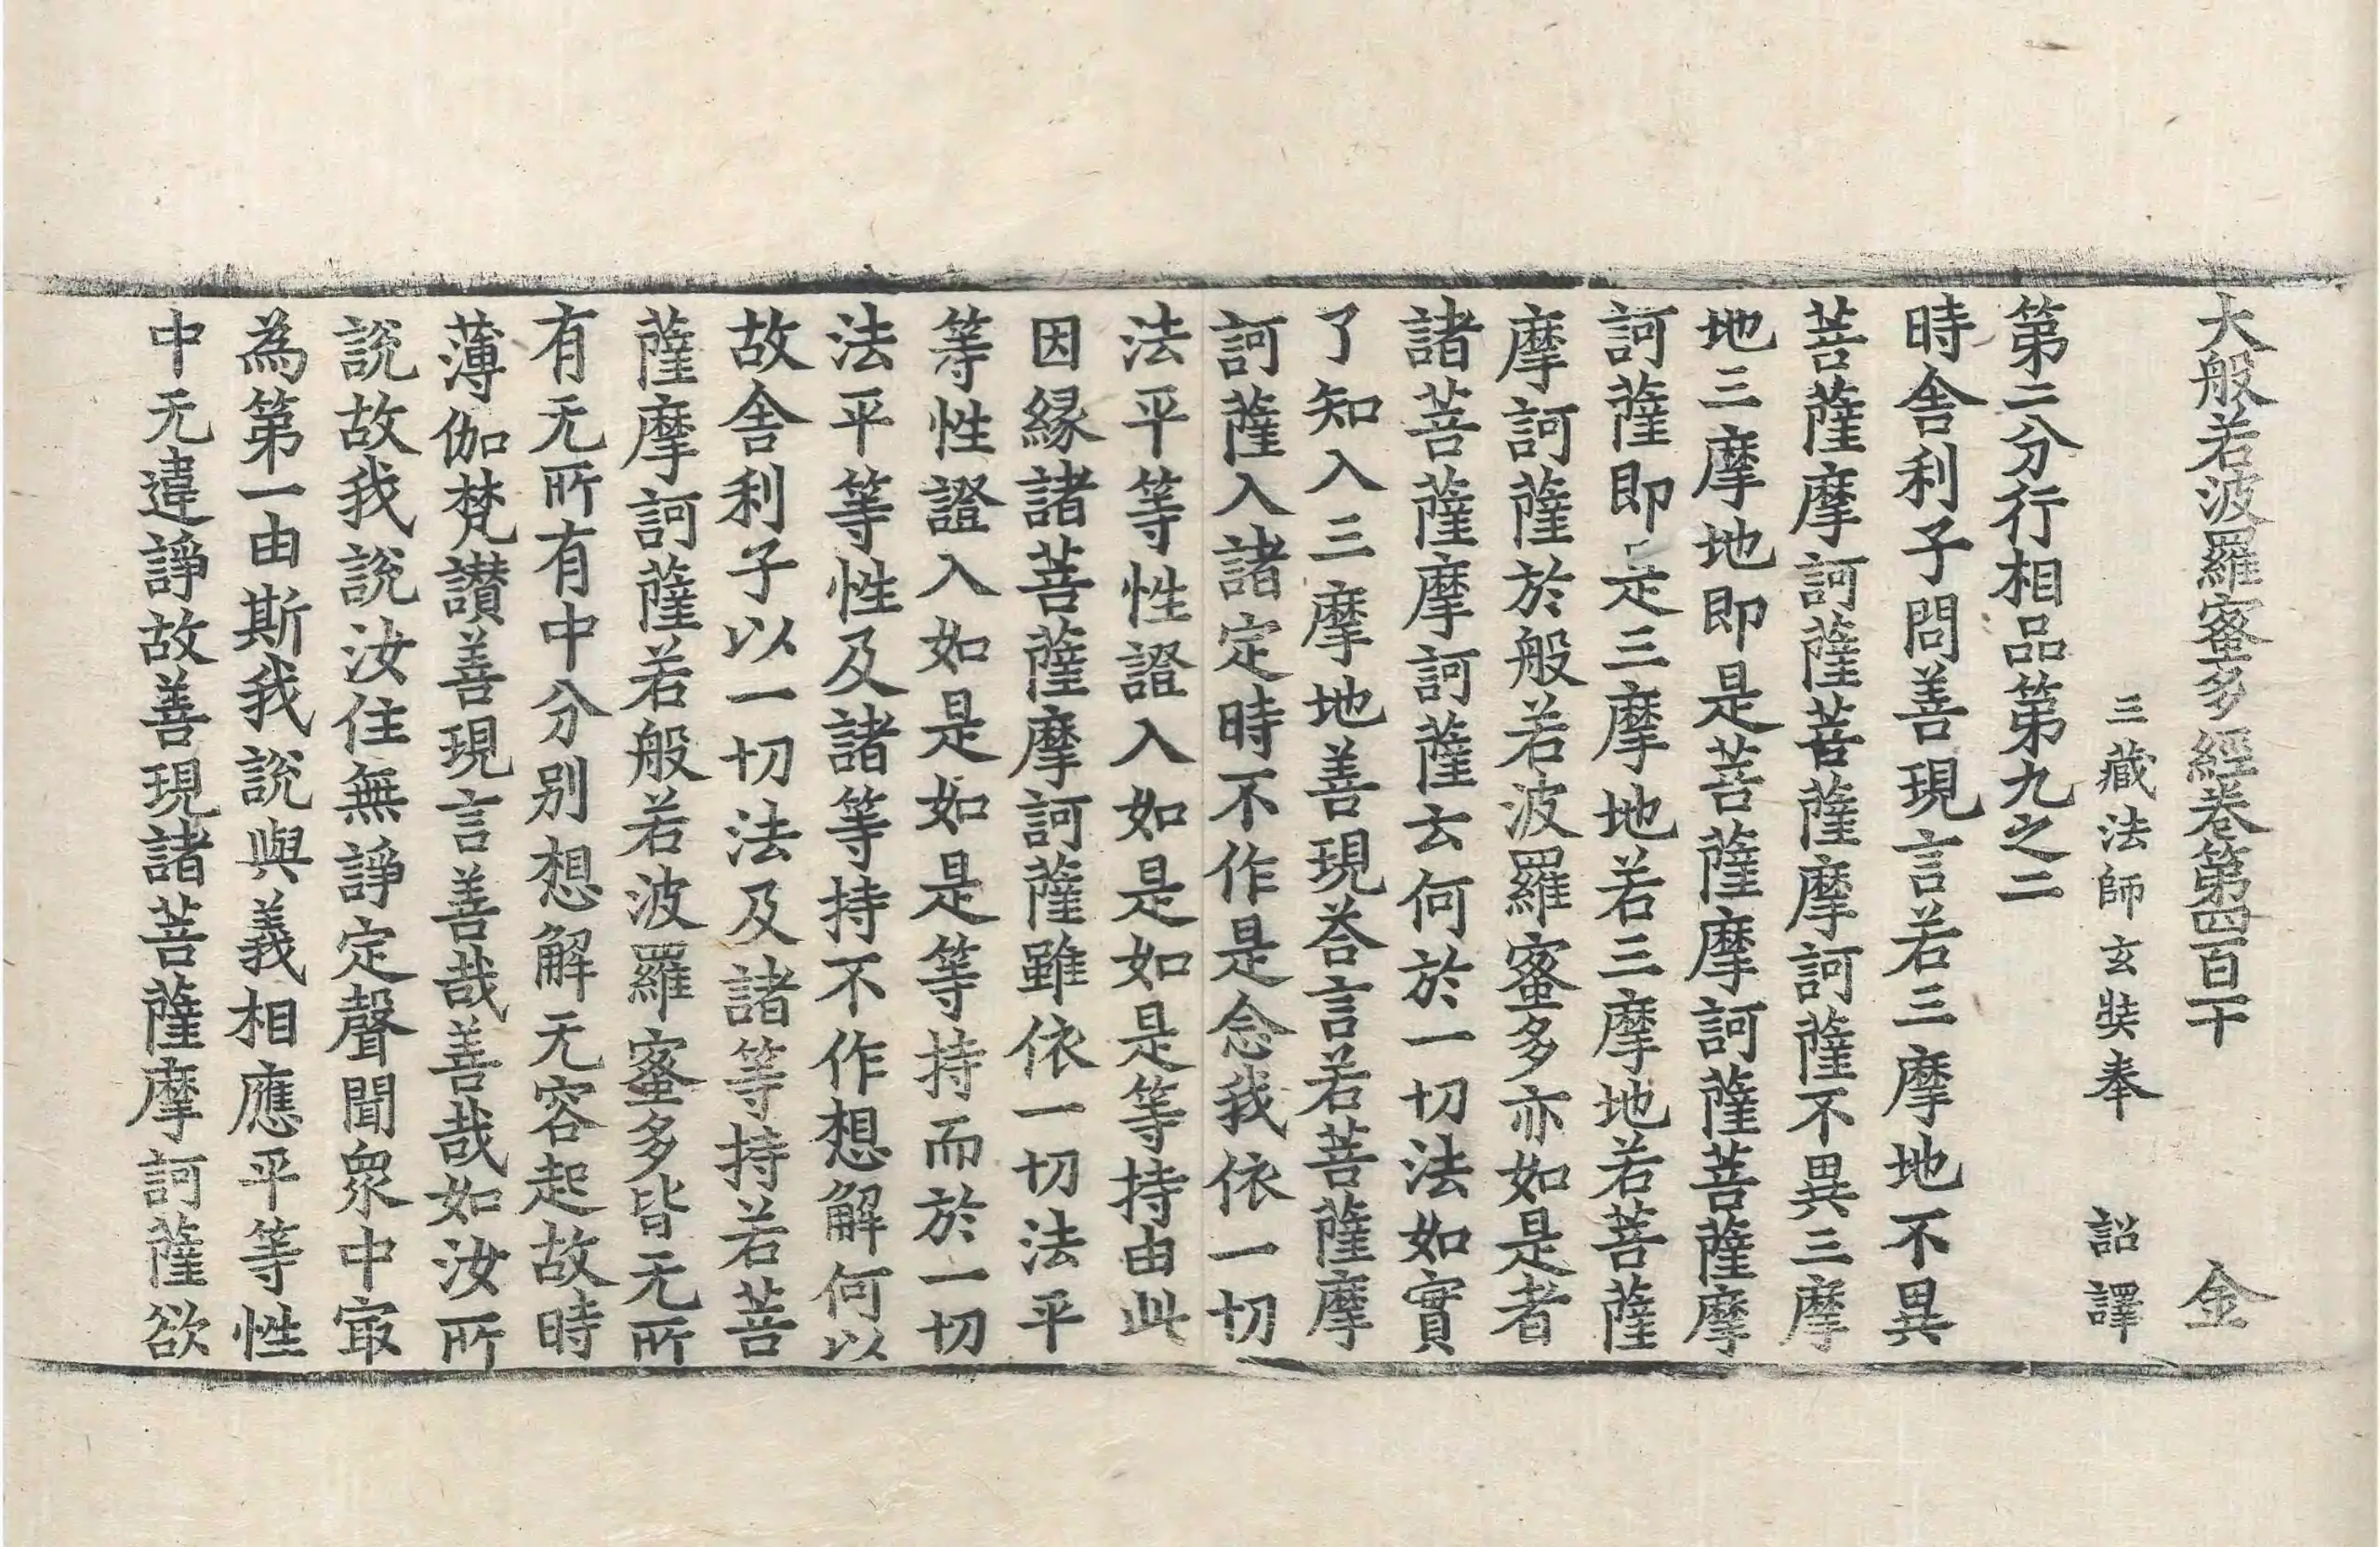 大般若波羅蜜多經卷第四百十 金
三藏法師玄奘奉 詔譯
第二分行相品第九之二
時舍利子問善現言若三摩地不異
菩薩摩訶薩菩薩摩訶薩不異三摩
地三摩地即是菩薩摩訶薩菩薩摩
訶薩即是三摩地若三摩地若菩薩
摩訶薩於般若波羅蜜多亦如是者
諸菩薩摩訶薩云何於一切法如實
了知入三摩地善現荅言若菩薩摩
訶薩入諸定時不作是念我依一切
法平等性證入如是如是等持由此
因緣諸菩薩摩訶薩雖依一切法平
等性證入如是如是等持而於一切
法平等性及諸等持不作想解何以
故舍利子以一切法及諸等持若菩
薩摩訶薩若般若波羅蜜多皆无所
有无所有中分別想解无容起故時
薄伽梵讃善現言善哉善哉如汝所
說故我說汝住無諍定聲聞眾中㝡
為第一由斯我說與義相應平等性
中无違諍故善現諸菩薩摩訶薩欲